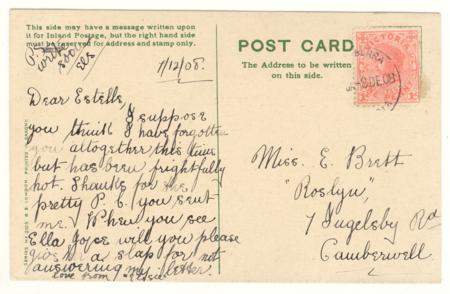 This side may have a message written upon
it for Inland Postage, but the right hand
side must be reserved for address and stamp only.
P.S.
write
soon
Els
1/12/08.
Dear Estelle,
I suppose
you think I have forgotten
you altogether this time
but has been frightfully
hot. Thanks for the
pretty P.C. you sent
me. When you see
Ella Joyce will you please
give her a slap for not
answering my letter.
love from Elsie
POST CARD
The Address to be written
on this side.
VICTORIA
DE 08
Miss. E. Brett
"Roslyn",
7 Inglesby Rd
Camberwell.